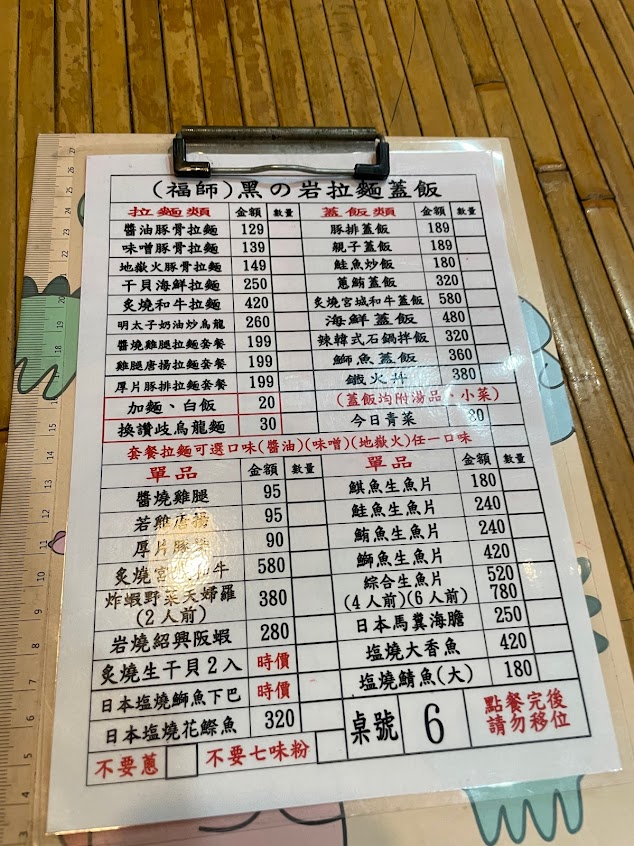 (福師)黑の岩拉麵蓋飯
拉麵類 金額 數量 蓋飯類 金額 數量
醬油豚骨拉麵 129 豚排蓋飯 189
味噌豚骨拉麵 139 親子蓋飯 189
地嶽火豚骨拉麵 149 鮭魚炒飯 180
干貝海鮮拉麵 250 蔥鮪蓋飯 320
炙燒和牛拉麵 420 炙燒宮城和牛蓋飯 580
明太子奶油炒烏龍 260 海鮮蓋飯 480
醬燒雞腿拉麵套餐 199 辣韓式石鍋拌飯 320
雞腿唐揚拉麵套餐 199 鰤魚蓋飯 360
厚片豚排拉麵套餐 199 鐵火丼 380
加麵、白飯 20 (蓋飯均附湯品、小菜)
換讚歧烏龍麵 30 今日青菜 30
套餐拉麵可選口味(醬油)(味噌)(地嶽火)任一口味
單品 金額 數量 單品 金額 數量
醬燒雞腿 95 鯕魚生魚片 180
若雞唐揚 95 鮭魚生魚片 240
厚片豚排 90 鮪魚生魚片 240
炙燒宮城和牛 580 鰤魚生魚片 420
炸蝦野菜天婦羅 380 綜合生魚片 520
(2人前) (4人前)(6人前) 780
岩燒紹興阪蝦 280 日本馬糞海膽 250
炙燒生干貝2入 時價 塩燒大香魚 420
日本塩燒鰤魚下巴 時價 塩燒鯖魚(大) 180
日本塩燒花鰹魚 320 桌號 6 點餐完後
請勿移位
不要蔥 不要七味粉